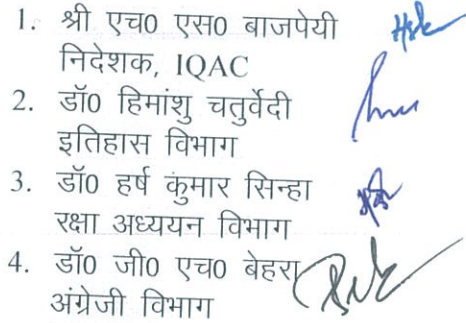 1. श्री एच0 एस0 बाजपेयी
निदेशक, IQAC
2. डॉ0 हिमांशु चतुर्वेदी
इतिहास विभाग
3. डॉ0 हर्ष कुमार सिन्हा
रक्षा अध्ययन विभाग
4. डॉ0 जी0 एच0 बेहरा
अंग्रेजी विभाग